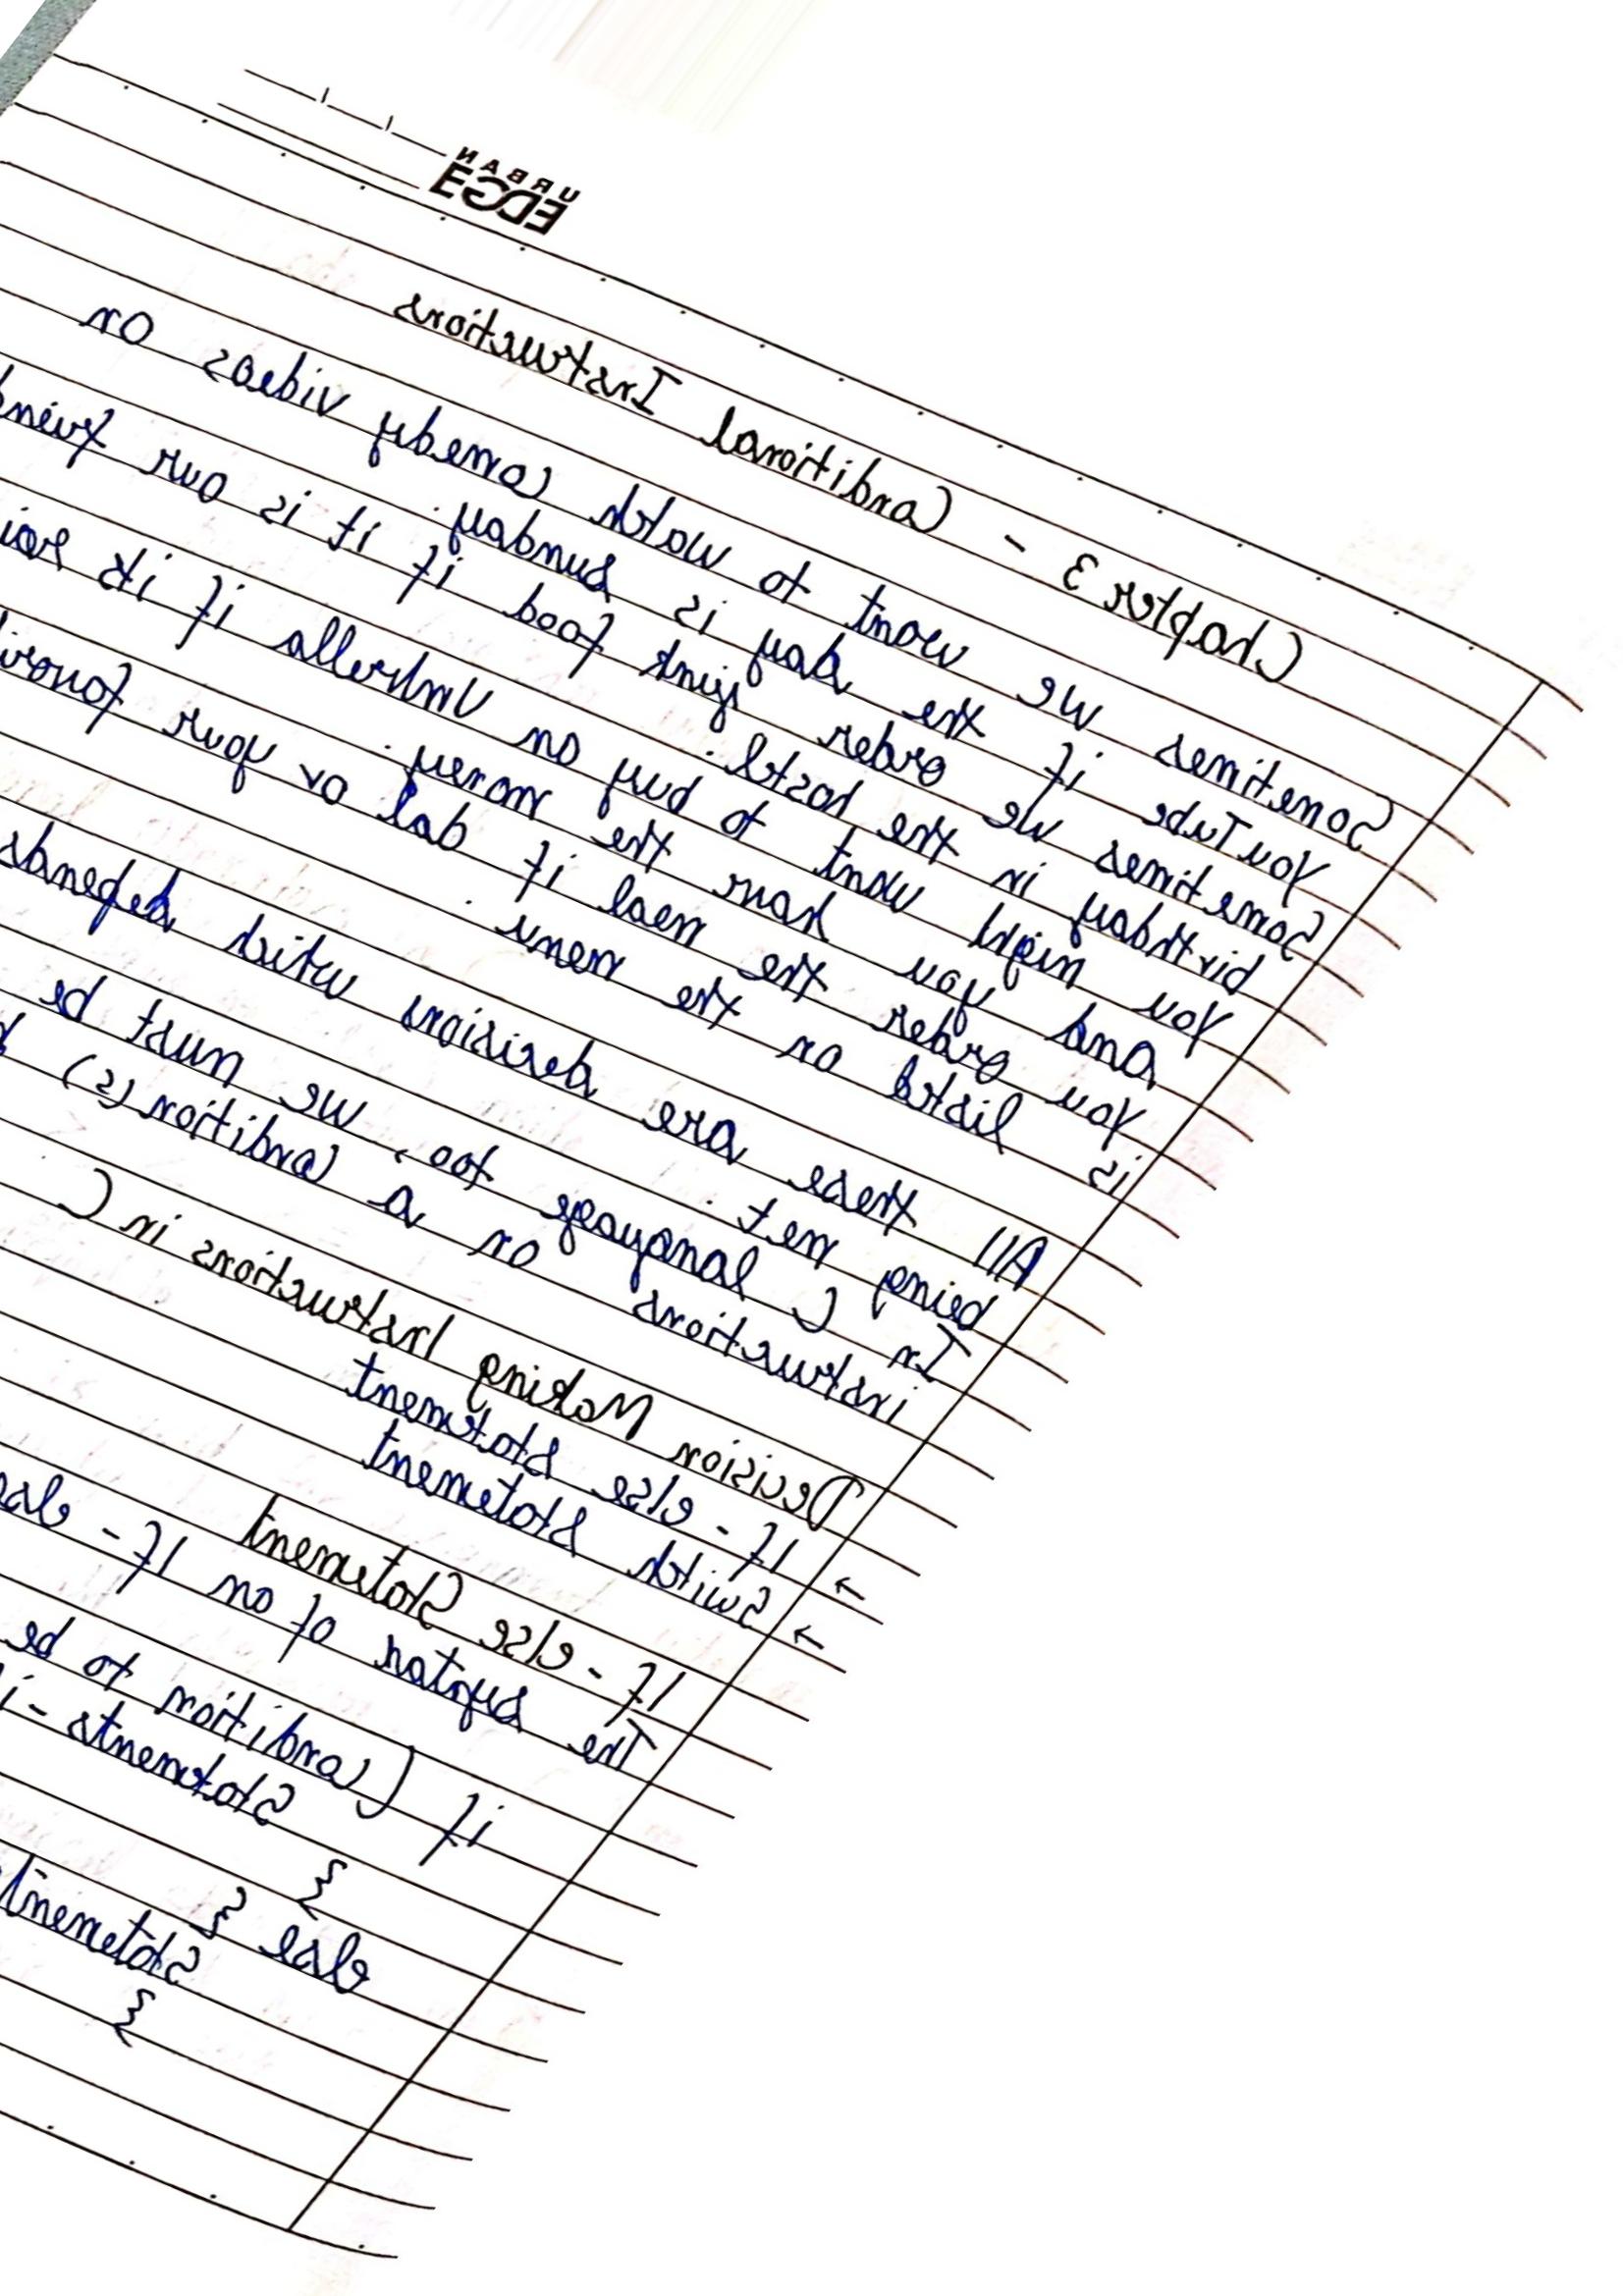 URBAN
EDGE
Chapter 3 - Conditional Instructions
Sometimes we want to watch comedy videos on
YouTube if the day is sunday.
Sometimes we order junk food if it is our friend
birthday in the hostel.
You might want to buy an Umbrella if its
and you have the money.
You order the meal if dal or your
is listed on the menu.
All these are decisions which depends
being met.
In C language too, we must be
instructions on a condition(s)
Decision Making Instructions in C
→ If - else statement
→ Switch statement
If - else Statement
The syntax of an If - else
if (Condition to be
Statements -
}
else {
Statement
}